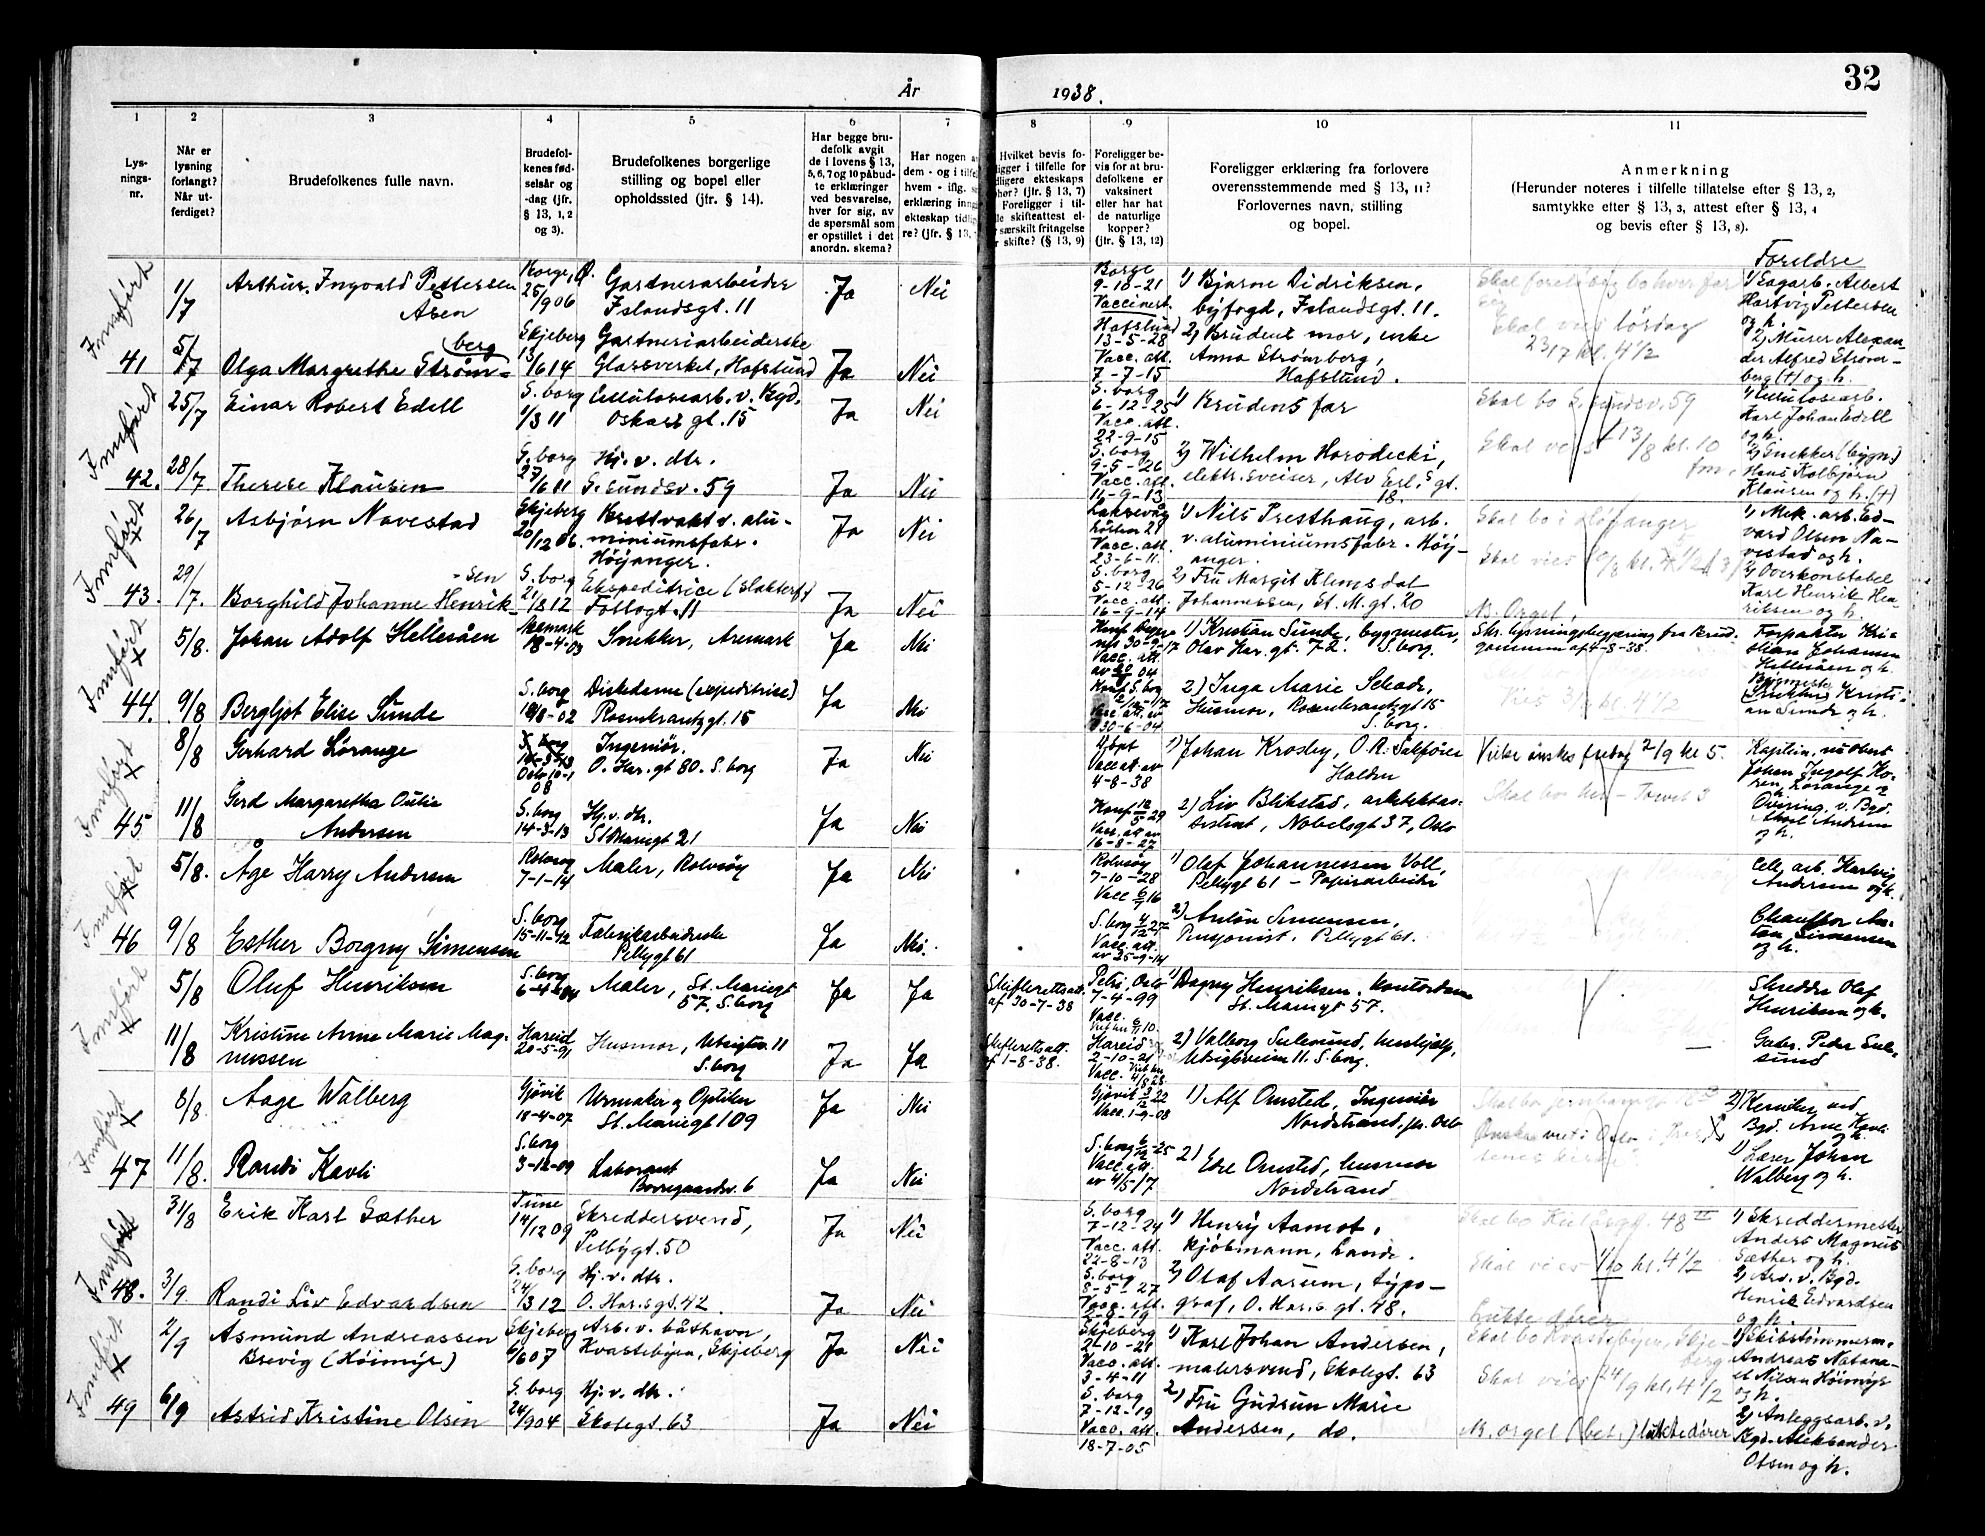 32
År 1938.
1 2 3 4 5 6 7 8 9 10 11
Lys-
nings-
nr.
Når er
lysning
forlangt?
Når ut-
ferdiget?
Brudefolkenes fulle navn.
Brudefol-
kenes fød-
selsår og
-dag (jfr.
§ 13, 1, 2
og 3).
Brudefolkenes borgerlige
stilling og bopel eller
opholdssted (jfr. § 14).
Har begge bru-
defolk avgit
de i lovens § 13,
5, 6, 7 og 10 påbud-
te erklæringer
ved besvarelse,
hver for sig, av
de spørsmål som
er opstillet i det
anordn. skema?
Har nogen a
dem - og i tilfel
hvem - iflg.
erklæring inng
ekteskap tidlig
re? (jfr. § 13,
Hvilket bevis fo-
ligger i tilfelle for
dligere ekteskaps
phør? (jfr. § 13, 7)
Foreligger i til-
le skifteattest el-
særskilt fritagelse
skifte? (§ 13, 9)
Foreligger be-
vis for at bru-
defolkene er
vaksinert
eller har hat
de naturlige
kopper?
(jfr. § 13, 12)
Foreligger erklæring fra forlovere
overensstemmende med § 13, 11?
Forlovernes navn, stilling
og bopel.
Anmerkning
(Herunder noteres i tilfelle tillatelse efter § 13, 2,
samtykke efter § 13, 3, attest efter § 13, 4
og bevis efter § 13, 8).
Foreldre
Innført
1/7
Arthur Ingvald Pettersen
Aben
Borge, Ø.
25/9 06
Gartnerarbeider
Islandsgt. 11
Ja
Nei
Borge
9-10-21
Vaccinert
1) Bjarne Didriksen,
byfogd, Islandsgt. 11.
1) Sagarb. Albert
Hartvig Pettersen
og h.
41
5/7
Olga Margrethe Strøm-
berg
Skjeberg
13/6 14
Gartneriarbeiderske
Glassverket, Hafslund
Ja
Nei
Hafslund
13-5-28
Vacc. att.
7-7-15
2) Brudens mor, enke
Anna Strømborg,
Hafslund.
Skal vies lørdag
23/7 kl. 4 1/2
2) Murer Alexan-
der Alfred Strøm-
berg (+) og h.
Innført
25/7
Einar Robert Edell
S. borg
1/3 11
Cellulosearb. v. Bgd.
Oskars gt. 15
Ja
Nei
S. borg
6-12-25
Vacc. att.
22-9-15
1) Brudens far
Skal bo S. sundsv. 59
1) Cellulosearb.
Karl Johan Edell
og h.
42.
28/7
Therese Klausen
S. borg
27/6 11
Hj. v. dtr.
S. sundsv. 59
Ja
Nei
S. borg
9-5-26
Vacc. att.
11-9-13
2) Wilhelm Horodecki,
elektr. sveiser, Alv Erl. s gt.
18.
Skal vies 13/8 kl. 10
fm.
2) Snekker (bygn.)
Hans Kolbjørn
Klausen og h. (+)
Innført
26/7
Asbjørn Navestad
Skjeberg
20/12 06.
Brettvakt v. alu-
miniumsfabr.
Höyanger.
Ja
Nei
Vacc. att.
23-6-11.
1) Nils Presthaug, arb.
v. aluminiumsfabr. Höy-
anger.
Skal bo i Høyanger
1) Mek. arb. Ed-
vard Olsen Na-
vestad og h.
43.
29/7.
Borghild Johanne Henrik-
sen
S. borg
21/8 12
Ekspeditrice (slakterf.)
Follogt. 11
Ja
Nei
S. borg
5-12-26
Vacc. att.
16-9-14
2) Fru Margit Klemsdal
Johannessen, St. M. gt. 20
M. Orgel,
2) Overkonstabel
Karl Henrik Hen-
riksen og h.
Innført
5/8.
Johan Adolf Hellesåen
Aremark
18-4-03
Snekker, Aremark
Ja
Nei
Vacc. att.
1) Kristian Sunde, bygmester,
Olav Har. gt. 72. S. borg.
Skr. lysningsbegjæring fra brud-
gommen af 4-8-38.
Forpakter Kri-
stian Johansen
Hellesåen og h.
44.
9/8
Bergljot Elise Sunde
S. borg
Diskedame (expeditrise)
Rosenkrantzgt. 15
Ja
Nei
Konf. S. borg
30-6-04
2) Inga Marie Schade,
Husmor, Rosenkrantzgt 15
S. borg.
Vies 3/9 kl. 4 1/2
Bygmester
Kristi-
an Sunde og h.
Innført
8/8
Gerhard Lörange
Oslo 10-1
08
Ingeniör.
O. Har. gt 80. S. borg
Ja
Nei
Vacc att. av
4-8-38
1) Johan Krosby, O.R. Sakförer
Halden
Vielse ønskes fredag 2/9 kl 5.
Johan Ingolf Ko-
ren Lörange og
h.
45
11/8
Gerd Margaretha Outie
Andersen
S. borg
14-3-13
Hj. v. dtr.
St Mariegt 21
Ja
Nei
Vacc. att av
16-8-27
2) Liv Blikstad, arkitektas-
sistent, Nobelsgt 37, Oslo
Andersen
og h.
Innført
5/8.
Åge Harry Andersen
Rolvsøy
7-1-14
Maler, Rolvsöy
Ja
Nei
Rolvsöy
7-10-28
1) Olaf Johannessen Voll,
Pellygt 61 - Papirarbeider
Cell. arb. Hartvig
Andersen og h.
46
9/8
Esther Borgny Simensen
S. borg
15-11-12
Fabrikarbeiderske
Pellygt 61
Ja
Nei.
Vacc. att.
av 25-9-14
2) Anton Simensen,
Pensjonist. Pellygt 61.
Chauffør An-
ton Simensen
og h.
Innført
5/8
Oluf Henriksen
S. borg
Maler, St. Mariegt
57. S. borg
Ja
Ja
Skifterettsatt.
af 30-7-38
Petri, Oslo
7-4-99
Vacc.
1) Dagny Henriksen, kontordame
St. Mariegt 57.
Skredder Olaf
Henriksen og h.
11/8
Kristine Anne Marie Mag-
nussen
Hareid
20-5-91
Husmor, Utsigtsv. 11
S. borg
Ja
Ja
Skifterettsatt.
af 1-8-38.
Hareid
2-10-21
Vacc.
2) Valborg Sulesund, hushjelp,
Utsigtsveien 11. S. borg.
Gabr. Peder Sule-
sund
Innført
8/8.
Aage Walberg
Gjövik
18-4-07
Urmaker og Optiker
St. Mariegt 109
Ja
Nei
Vacc. 1-9-08
1) Alf Omsted, Ingeniör
Nordstrand, pr. Oslo
2) Kemiker ved
Bgd. Arne Kavli
og h.
47
11/8.
Randi Kavli
S. borg
3-12-09
Laborant
Borregaardsv. 6
Ja
Nei
Vacc. att.
2) Edle Omsted, husmor
Nordstrand
1) Lærer Johan
Walberg og h.
Innført
31/8
Erik Karl Sæther
Tune
14/12 09
Skreddersvend,
Pelbygt. 50
Ja
Nei
S. borg
7-12-24
Vacc. att.
22-8-13
1) Henry Aamot,
kjøbmann, Lande.
1) Skreddermester
Anders Magnus
Sæther og h.
48.
3/9
Randi Liv Edvardsen
S. borg
24/3 12
Hj. v. dtr.
O. Har.s gt. 42.
Ja
Nei
S. borg
8-5-27
Vacc. att.
2) Olaf Aarum, typo-
graf, O. Har.s gt. 48.
Skal vies 1/10 kl. 4 1/2
Lukte dører
2) Arb. v. Bgd.
Henrik Edvardsen
og h.
Innført
2/9
Åsmund Andreassen
Brevig (Höimyr)
Skjeberg
6/6 07
Arb. v. båthavn,
Kvastebyen, Skjeberg
Ja
Nei
Skjeberg
Vacc. att.
3-4-11
1) Karl Johan Andersen,
malersvend, Skolegt. 63
Skal bo Kvastebyen, Skje-
berg
Skal vies 24/9 kl. 4 1/2
1) Skibstømmerm.
Andreas Natana-
el Nilsen Höimyr
og h.
49
6/9
Astrid Kristine Olsen
S. borg
24/9 04
Hj. v. dtr.
Skolegt. 63
Ja
Nei
S. borg
7-12-19
Vacc. att.
18-7-05
2) Fru Gudrun Marie
Andersen, do.
M. orgel (bet.) lukte dører
2) Anleggsarb. v.
Bgd. Aleksander
Olsen og h.